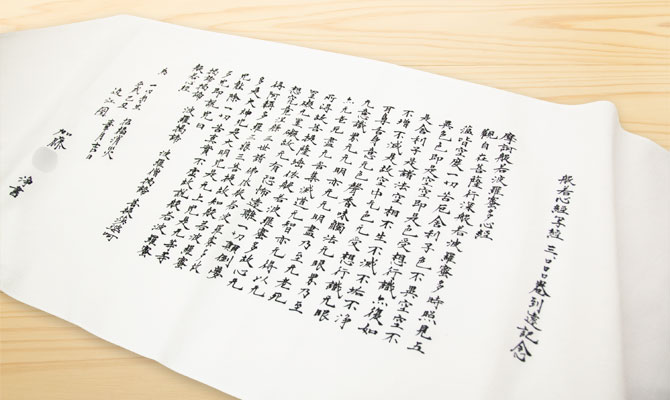 般若心経写経三〇〇〇巻到達記念
摩訶般若波羅蜜多心経
觀自在菩薩行深般若波羅蜜多時照見五
蘊皆空度一切苦厄舎利子色不異空空不
異色色即是空空即是色受想行識亦復如
是舎利子是諸法空相不生不滅不垢不浄
不増不減是故空中无色无受想行識无眼
耳鼻舌身意无色聲香味觸法无眼界乃至
无意識界无无明亦无无明盡乃至无老死
亦无老死盡无苦集滅道无智亦无得以无
所得故菩提薩埵依般若波羅蜜多故心无
罣礙无罣礙故无有恐怖遠離一切顛倒夢
想究竟涅槃三世諸佛依般若波羅蜜多故
得阿耨多羅三藐三菩提故知般若波羅蜜
多是大神呪是大明呪是无上呪是无等等
呪能除一切苦真實不虚故説般若波羅蜜
多呪即説呪曰
羯諦羯諦 波羅羯諦 波羅僧羯諦 菩提薩婆訶
般若心経
為
加藤 浄書